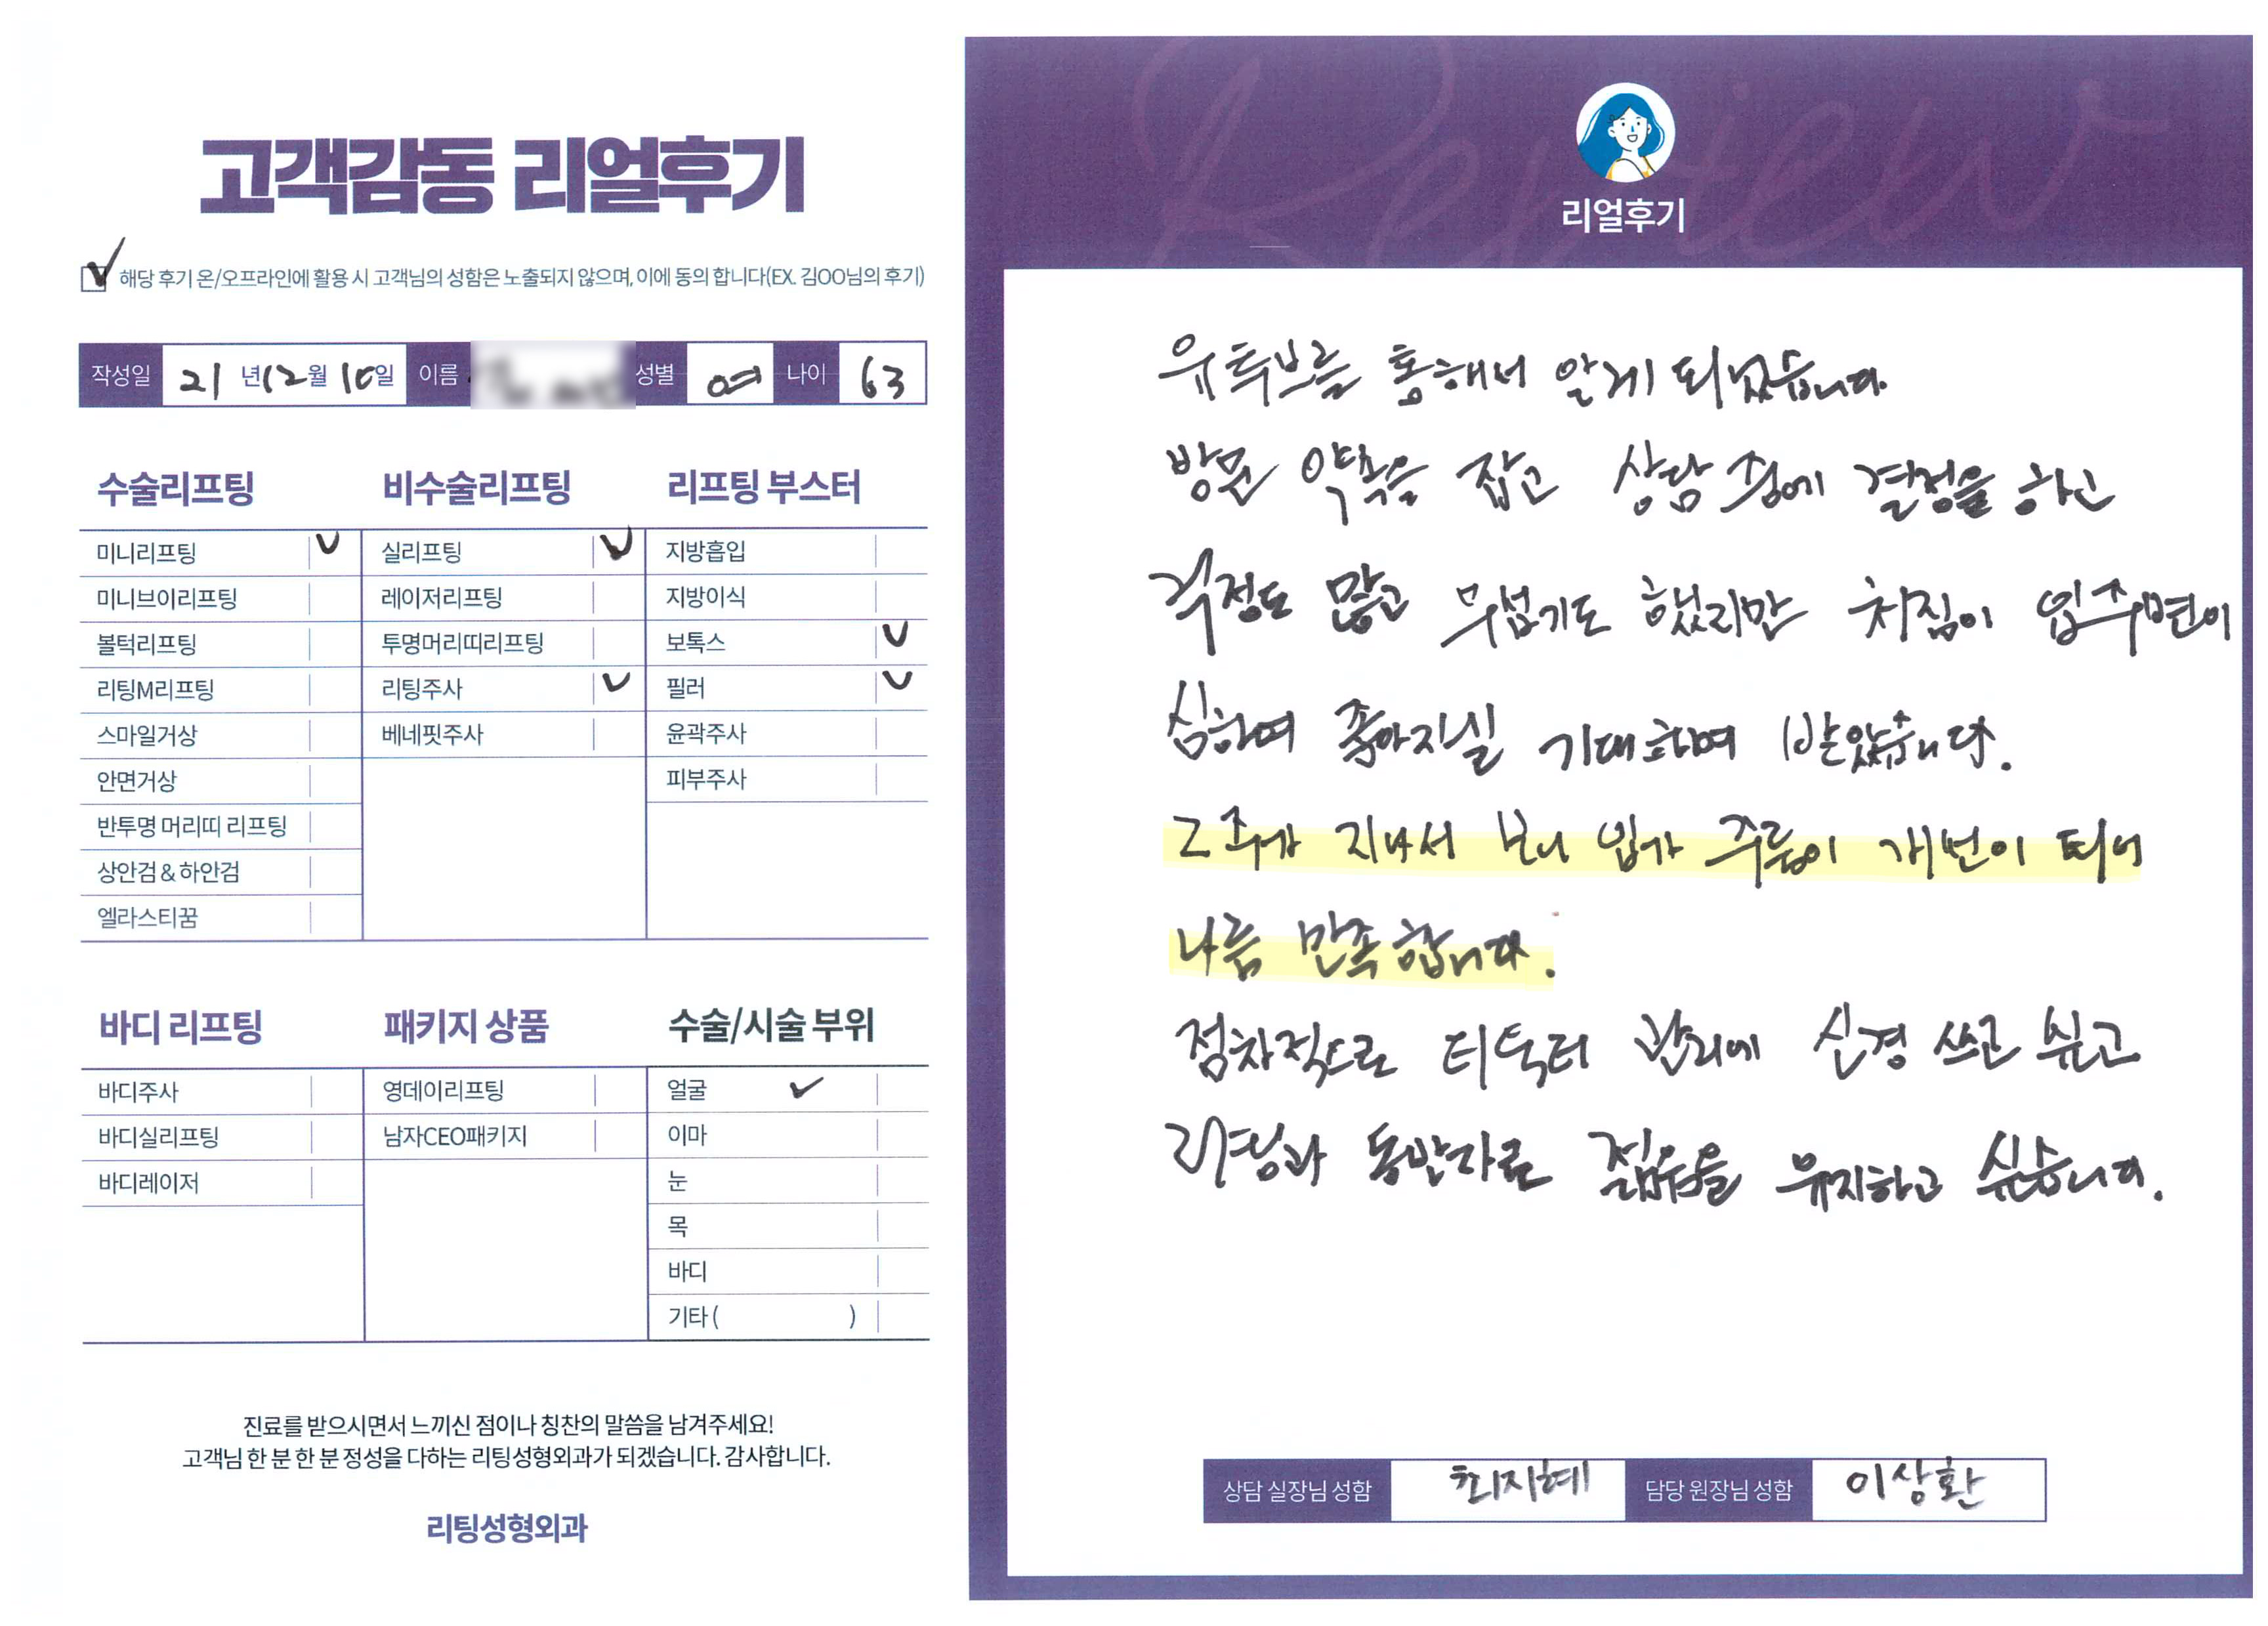 고객감동 리얼후기
해당 후기 온/오프라인에 활용 시 고객님의 성함은 노출되지 않으며, 이에 동의 합니다(EX. 김OO님의 후기)
작성일 21 년 12 월 10 일 이름 성별 여 나이 63
수술리프팅
미니리프팅
미니브이리프팅
볼턱리프팅
리팅M리프팅
스마일거상
안면거상
반투명 머리띠 리프팅
상안검 & 하안검
엘라스티꿈
비수술리프팅
실리프팅
레이저리프팅
투명머리띠리프팅
리팅주사
베네핏주사
리프팅 부스터
지방흡입
지방이식
보톡스
필러
윤곽주사
피부주사
바디 리프팅
바디주사
바디실리프팅
바디레이저
패키지 상품
영데이리프팅
남자CEO패키지
수술/시술 부위
얼굴
이마
눈
목
바디
기타 ( )
진료를 받으시면서 느끼신 점이나 칭찬의 말씀을 남겨주세요!
고객님 한 분 한 분 정성을 다하는 리팅성형외과가 되겠습니다. 감사합니다.
리팅성형외과
Review
리얼후기
유튜브를 통해서 알게 되었습니다.
방문 약속을 잡고 상담 중에 결정을 하고
걱정도 많고 무섭기도 했지만 처짐이 입주면이
심하여 좋아지실 기대하며 받았습니다.
2주가 지나서 보니 입가 주름이 개선이 되어
나름 만족합니다.
점차적으로 더욱더 관리에 신경 쓰고 싶고
리팅과 동반자로 젊음을 유지하고 싶습니다.
상담 실장님 성함 최지혜 담당 원장님 성함 이상환